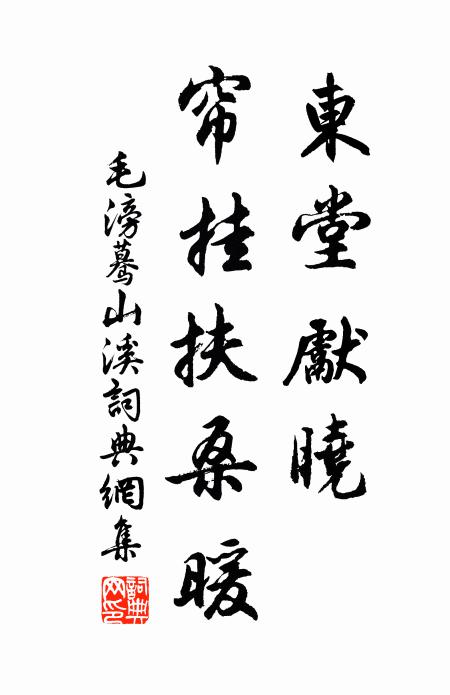 東堂獻曉
帘挂扶桑暖
毛滂驀山溪詞典網集
詞典网印